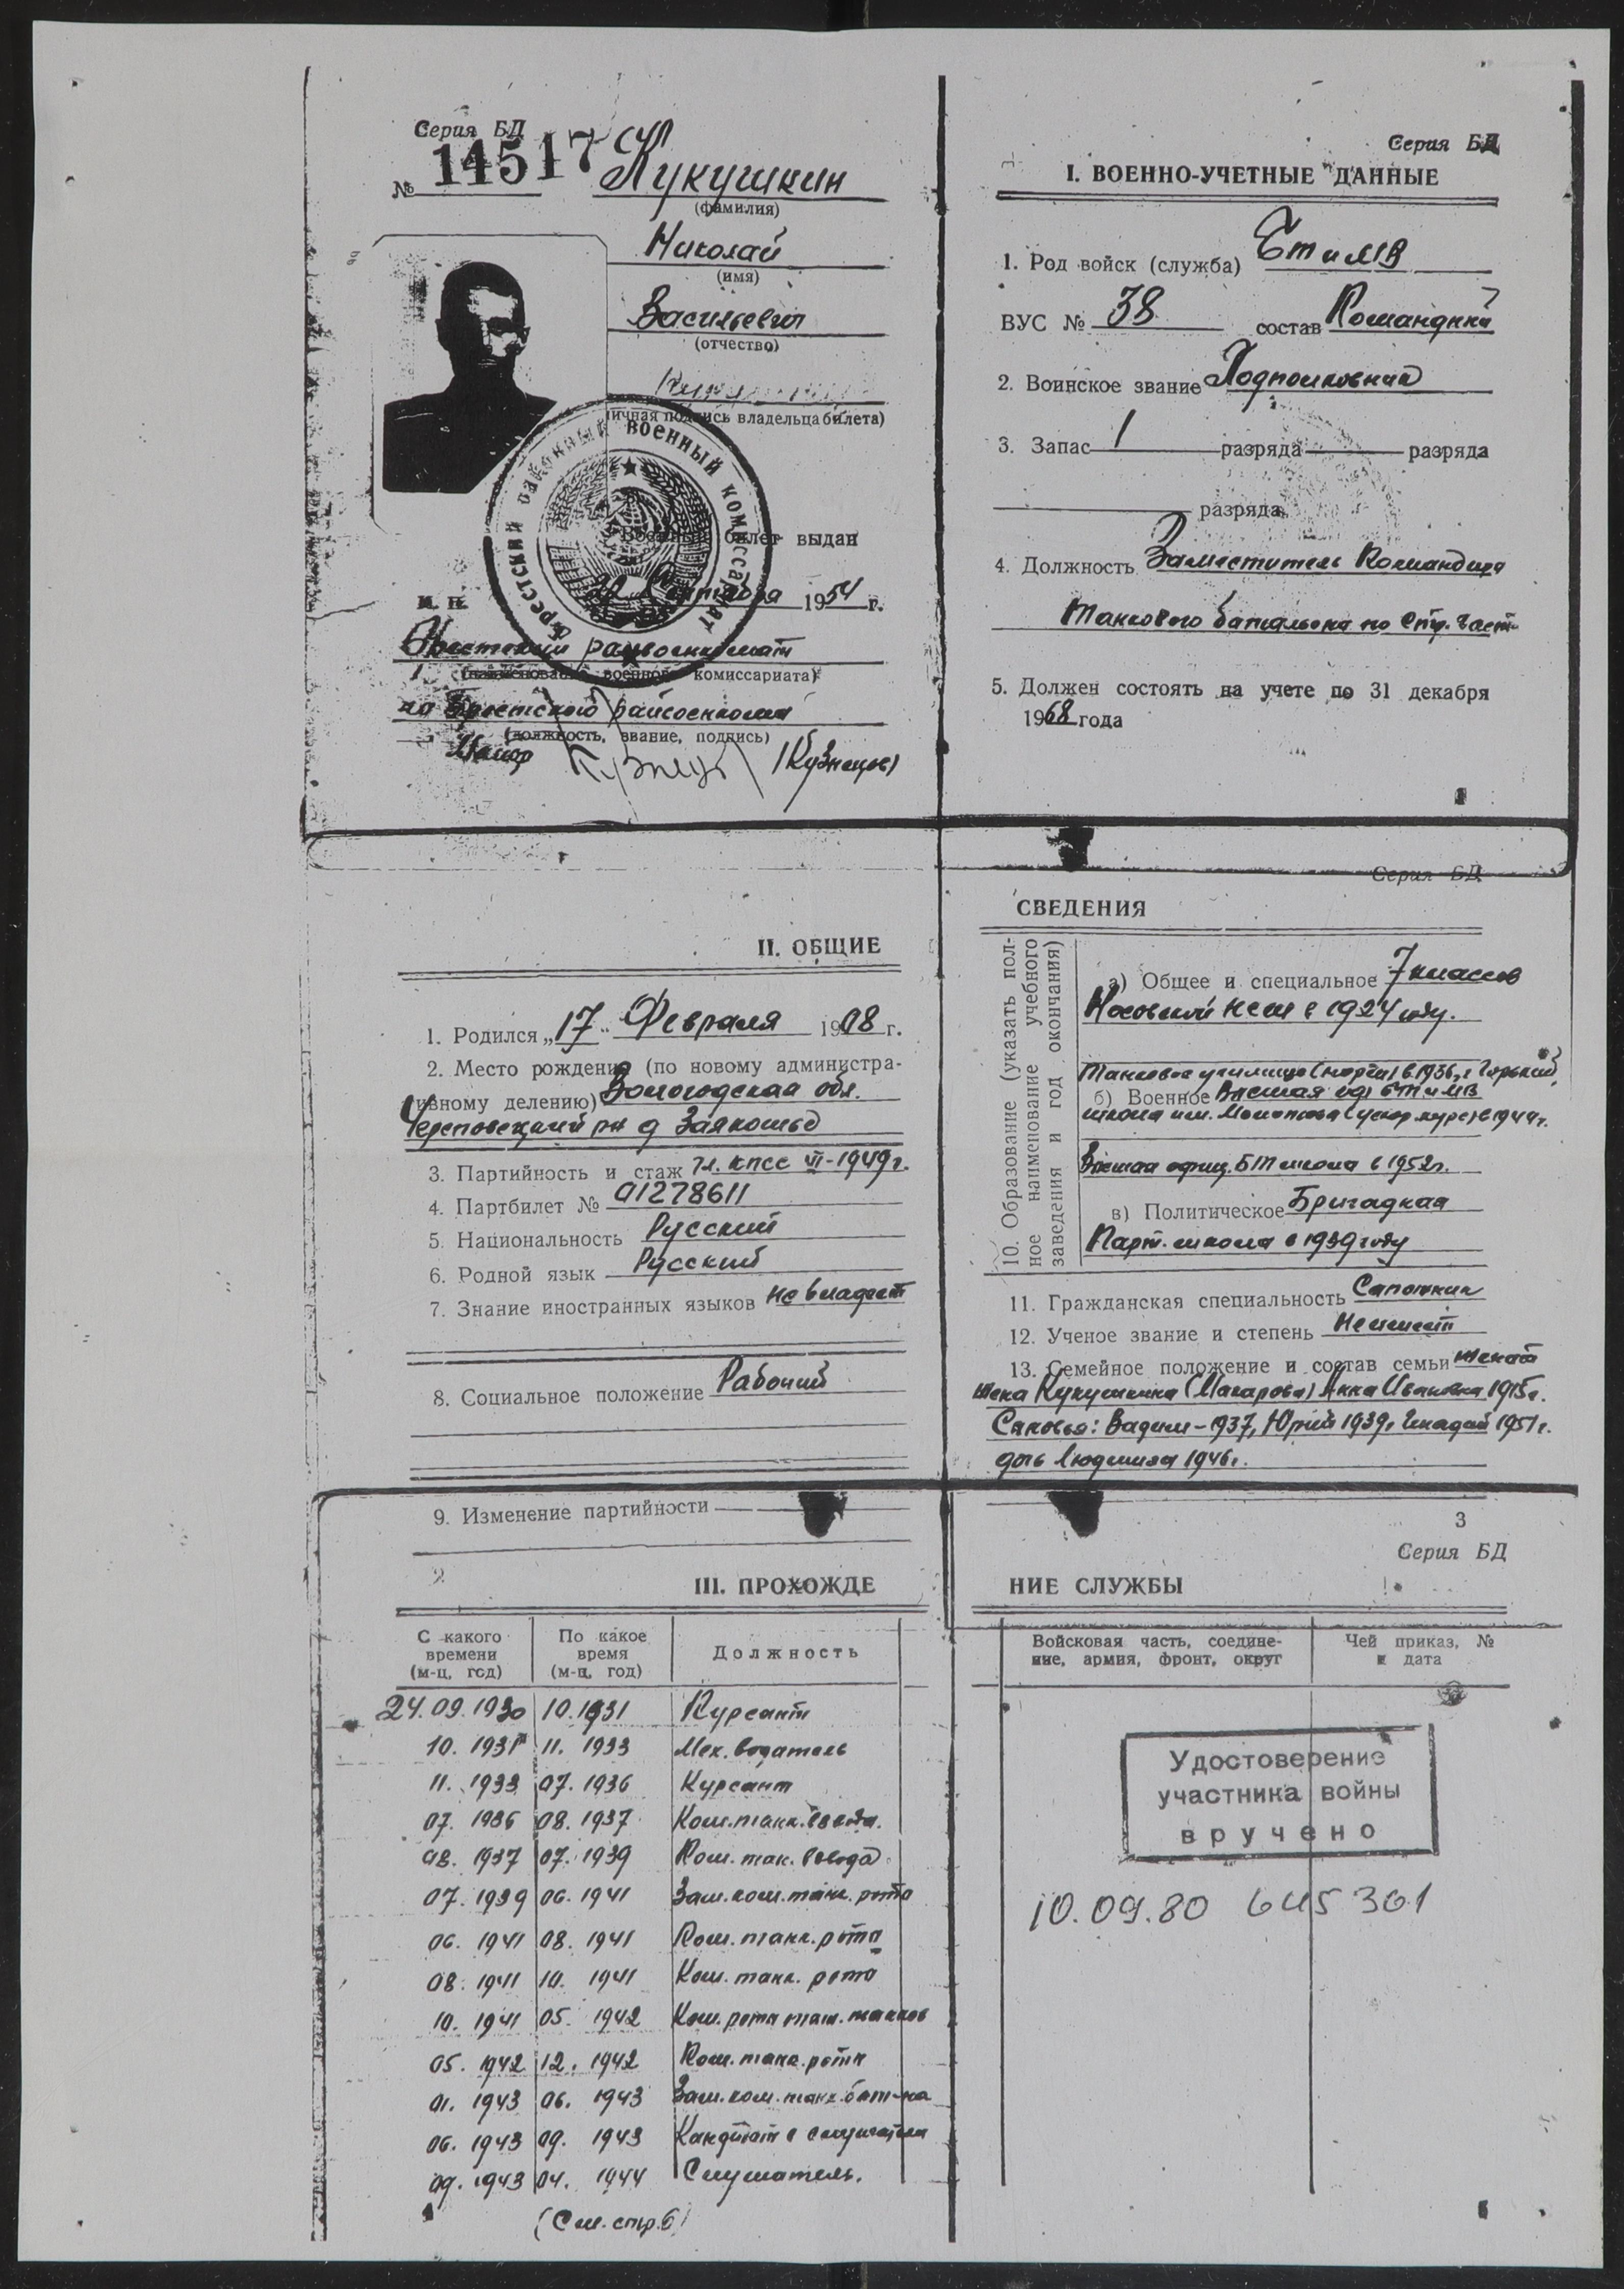 Серия БД
№ 14517 Кукушкин
(фамилия)
Николай
(имя)
Васильевич
(отчество)
личная подпись владельца билета)
Брестский районный военный комиссариат
Военный билет выдан
м. п. 1954 г.
Брестский райвоенкомат
(наименование военного комиссариата)
Брестского райвоенкомата
(должность, звание, подпись)
Майор (Кузнецов)
Серия БД
I. ВОЕННО-УЧЕТНЫЕ ДАННЫЕ
1. Род войск (служба) БТ и МВ
ВУС № 38 состав Командный
2. Воинское звание Подполковник
3. Запас 1 разряда разряда
разряда
4. Должность Заместитель Командира
Танкового батальона по стр. части
5. Должен состоять на учете по 31 декабря
1968 года
II. ОБЩИЕ
1. Родился „17" Февраля 1908 г.
2. Место рождения (по новому администра-
тивному делению) Вологодская обл.
Череповецкий рн д
3. Партийность и стаж чл. КПСС VI-1949г.
4. Партбилет № 01278611
5. Национальность Русский
6. Родной язык Русский
7. Знание иностранных языков не владеет
8. Социальное положение Рабочий
Серия БД
СВЕДЕНИЯ
10. Образование (указать пол-
ное наименование учебного
заведения и год окончания)
а) Общее и специальное 7 классов
в 1924 году.
Танковое училище в 1936 г Горький
б) Военное Высшая оф БТ и МВ
школа им. Молотова (ускор. курс) в 1944г.
Высшая офиц. БТ школа в 1952г.
в) Политическое Бригадная
Парт. школа в 1939 году
11. Гражданская специальность Сапожник
12. Ученое звание и степень Не имеет
13. Семейное положение и состав семьи женат
жена Кукушкина (Макарова) Анна Ивановна 1915г.
Сыновья: Вадим-1937, Юрий 1939г Генадий 1951г.
дочь Людмила 1946г.
9. Изменение партийности
2
III. ПРОХОЖДЕ
3
Серия БД
НИЕ СЛУЖБЫ
С какого времени (м-ц, год) По какое время (м-ц, год) Должность
Войсковая часть, соедине-ние, армия, фронт, округ Чей приказ, № и дата
24.09.1930 10.1931 Курсант
10. 1931 11. 1933 Мех. водитель
11. 1933 07. 1936 Курсант
07. 1936 08. 1937 Ком. танк. взвода.
08. 1937 07. 1939 Ком. тан. взвода
07. 1939 06. 1941 Зам. ком. танк. роты
06. 1941 08. 1941 Ком. танк. роты
08. 1941 10. 1941 Ком. танк. роты
10. 1941 05. 1942 Ком. роты тяж. танков
05. 1942 12. 1942 Ком. танк. роты
01. 1943 06. 1943 Зам. ком. танк. бат-на
06. 1943 09. 1943 Кандидат в слушатели
09. 1943 04. 1944 Слушатель.
(См. стр. 6)
Удостоверение
участника войны
вручено
10.09.80 645361